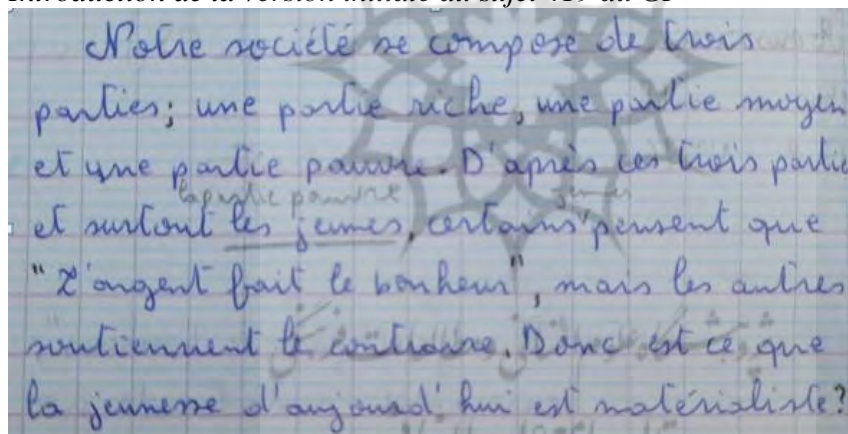 Notre société se compose de trois
parties; une partie riche, une partie moyen
et une partie pauvre. D'après ces trois partie
la partie pauvre jeunes
et surtout les jeunes, certains pensent que
"L'argent fait le bonheur", mais les autres
soutiennent le contraire. Donc est ce que
la jeunesse d'aujourd'hui est matérialiste?